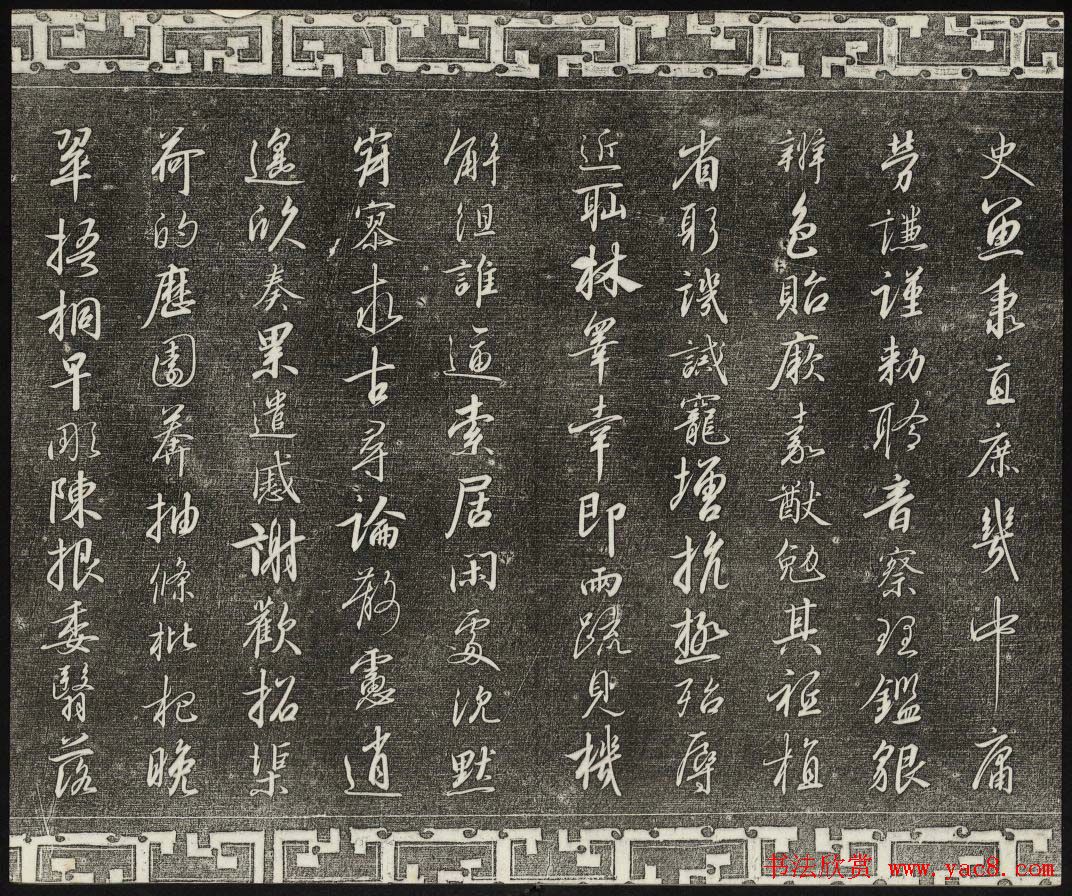 史魚秉直庶幾中庸
勞謙謹勅聆音察理鑑貌
辨色貽厥嘉猷勉其祗植
省躬譏誡寵增抗極殆辱
近耻林皋幸即兩疏見機
解組誰逼索居閑處沉默
寂寥求古尋論散慮逍
遙欣奏累遣慼謝歡招渠
荷的歷園莽抽條枇杷晚
翠梧桐早彫陳根委翳落
书法欣赏 www.yac8.com